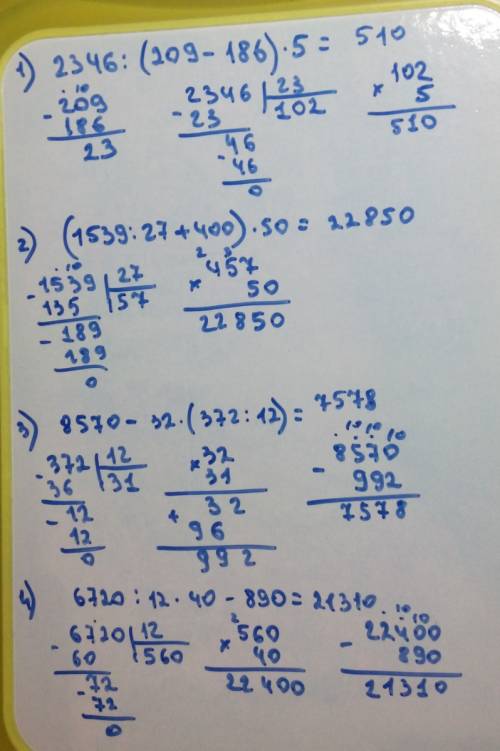 1) 2346 : (209 - 186) · 5 = 510
- 209
186
23
- 2346 | 23
23 | 102
46
- 46
0
× 102
5
510
2) (1539 : 27 + 400) · 50 = 22850
- 1539 | 27
135 | 57
- 189
189
0
× 457
50
22850
3) 8570 - 32 · (372 : 12) = 7578
- 372 | 12
36 | 31
- 12
12
0
× 32
31
+ 32
96
992
- 8570
992
7578
4) 6720 : 12 · 40 - 890 = 21310
- 6720 | 12
60 | 560
- 72
72
0
× 560
40
22400
- 22400
890
21310